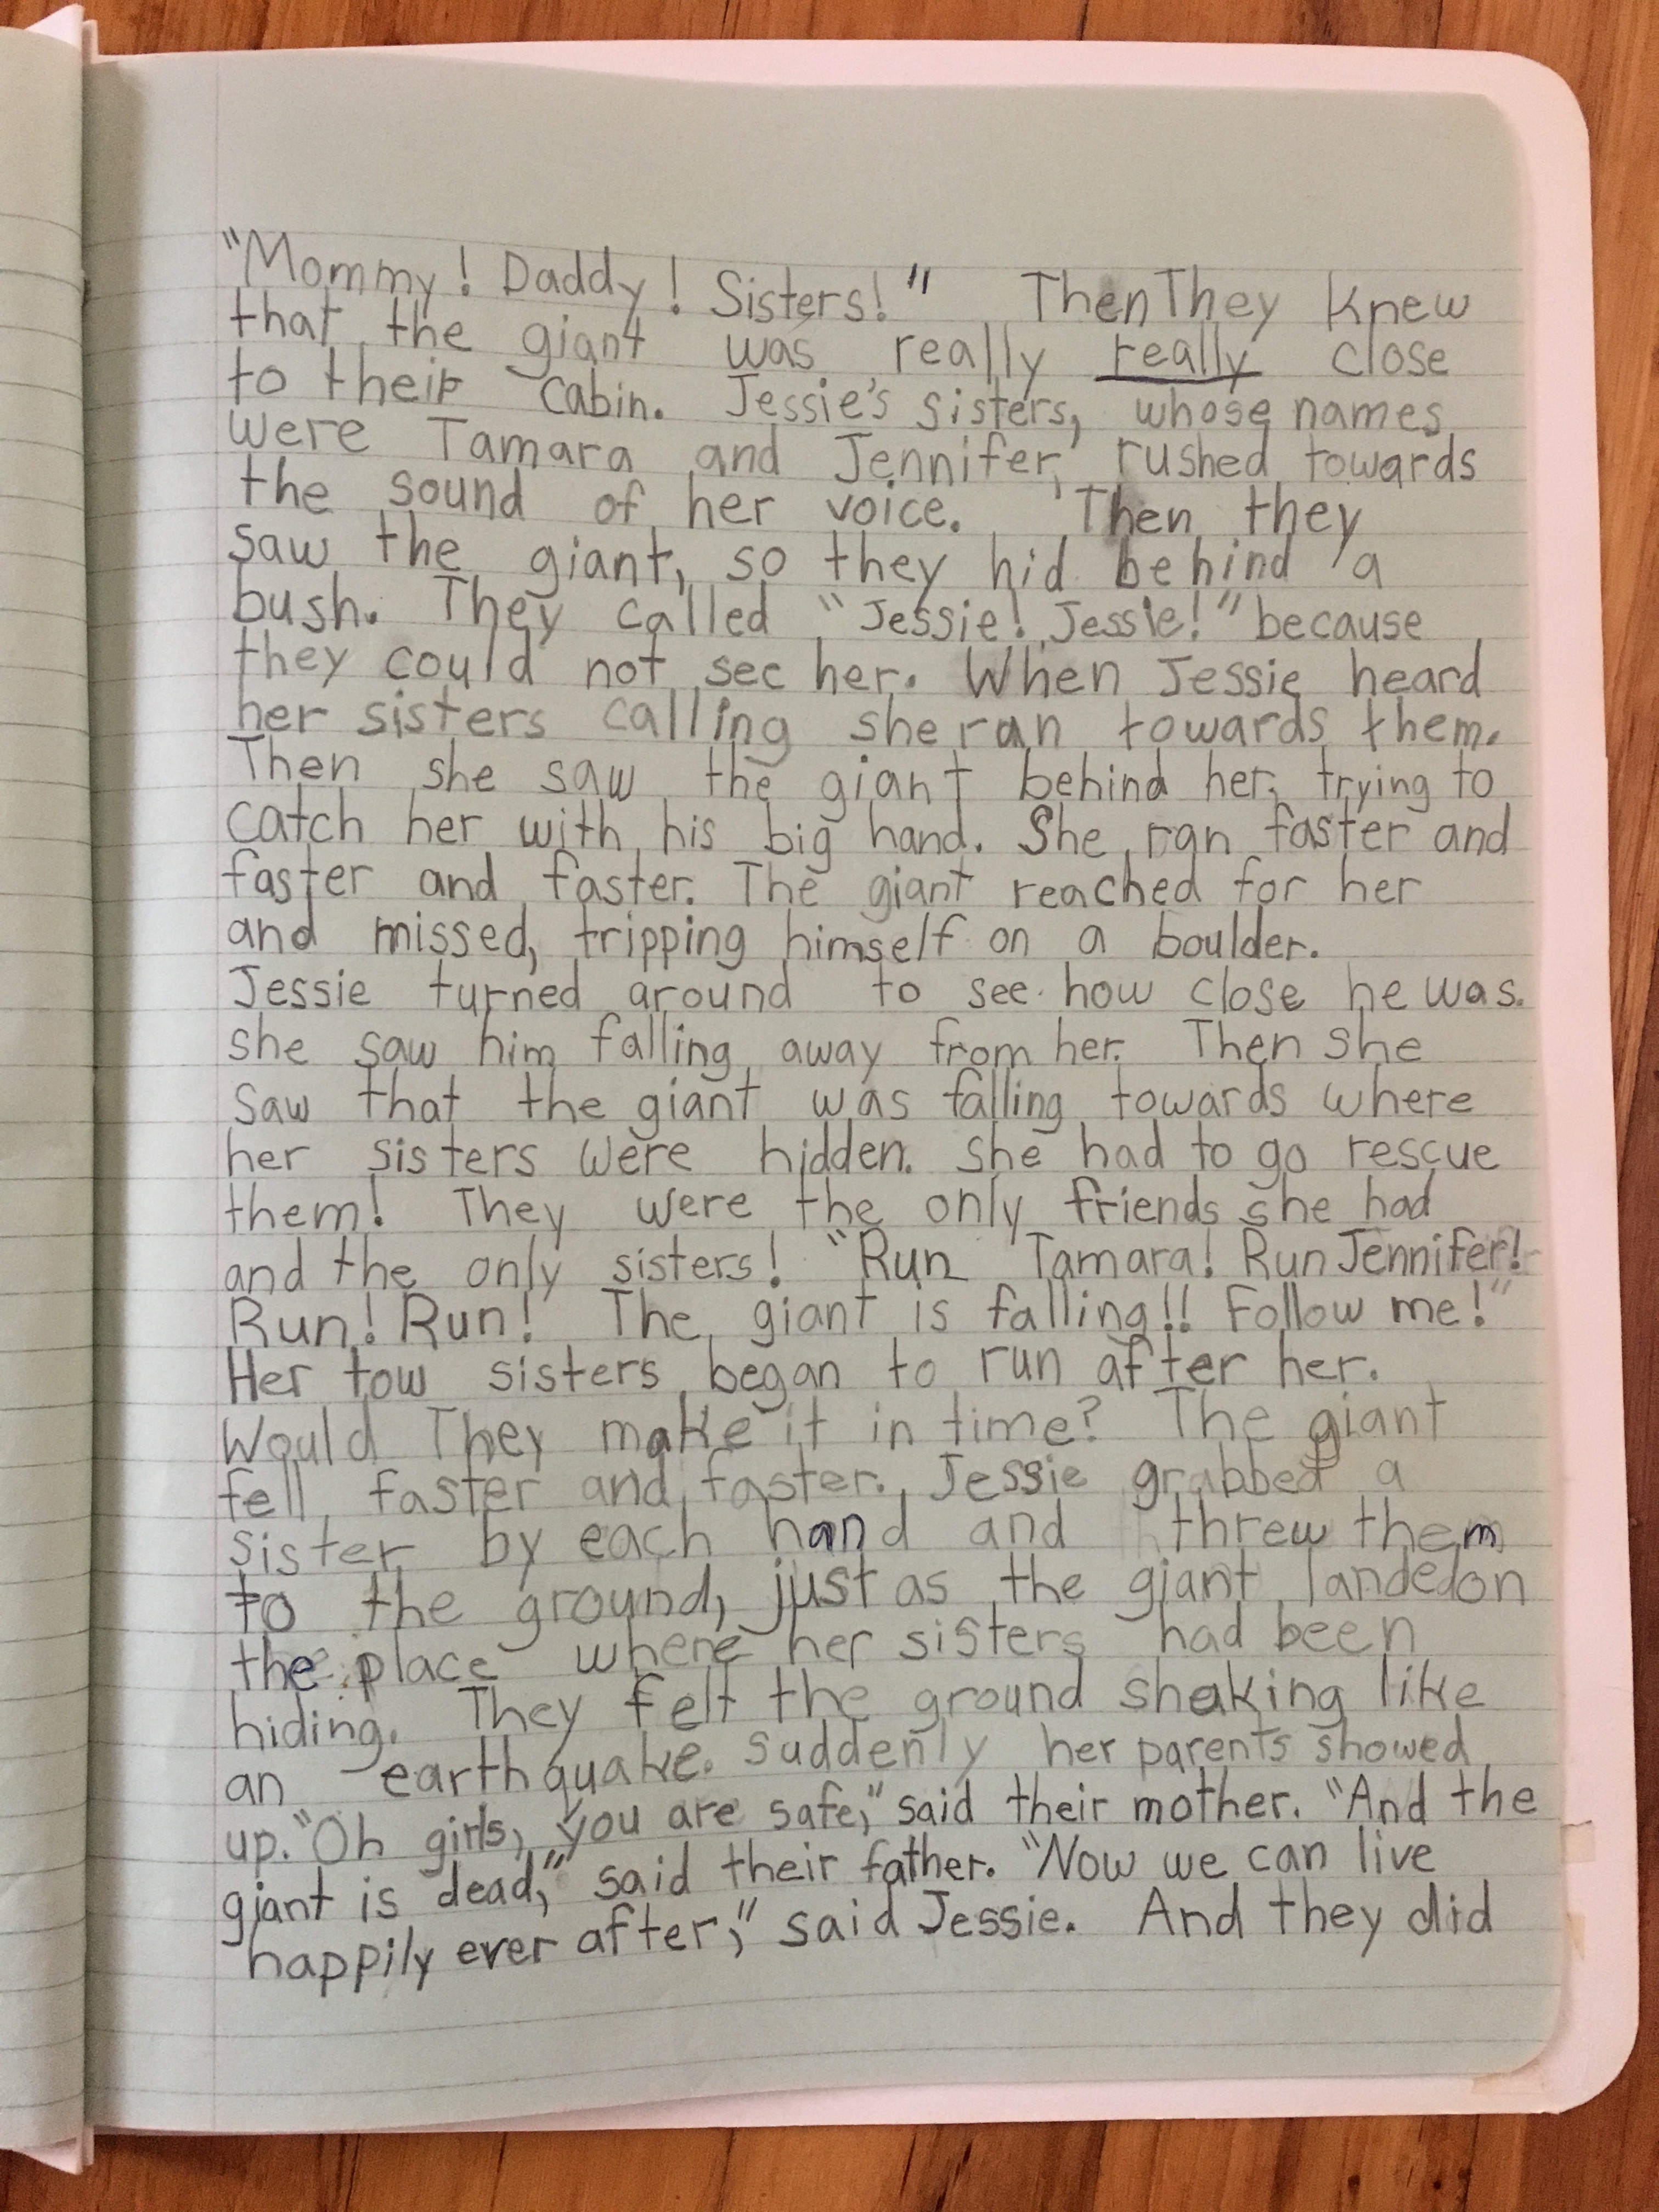 "Mommy! Daddy! Sisters!" Then They knew
that the giant was really really close
to their cabin. Jessie's sisters, whose names
were Tamara and Jennifer, rushed towards
the sound of her voice. Then they
saw the giant, so they hid behind a
bush. They called "Jessie! Jessie!" because
they could not see her. When Jessie heard
her sisters calling she ran towards them.
Then she saw the giant behind her, trying to
catch her with his big hand. She ran faster and
faster and faster. The giant reached for her
and missed, tripping himself on a boulder.
Jessie turned around to see how close he was.
she saw him falling away from her. Then she
saw that the giant was falling towards where
her sisters were hidden. She had to go rescue
them! They were the only friends she had
and the only sisters! "Run Tamara! Run Jennifer!
Run! Run! The giant is falling!! Follow me!"
Her tow sisters began to run after her.
Would They make it in time? The giant
fell faster and faster. Jessie grabbed a
sister by each hand and threw them
to the ground, just as the giant landed on
the place where her sisters had been
hiding. They felt the ground shaking like
an earthquake. Suddenly her parents showed
up. "Oh girls, you are safe," said their mother. "And the
giant is dead," said their father. "Now we can live
happily ever after," said Jessie. And they did